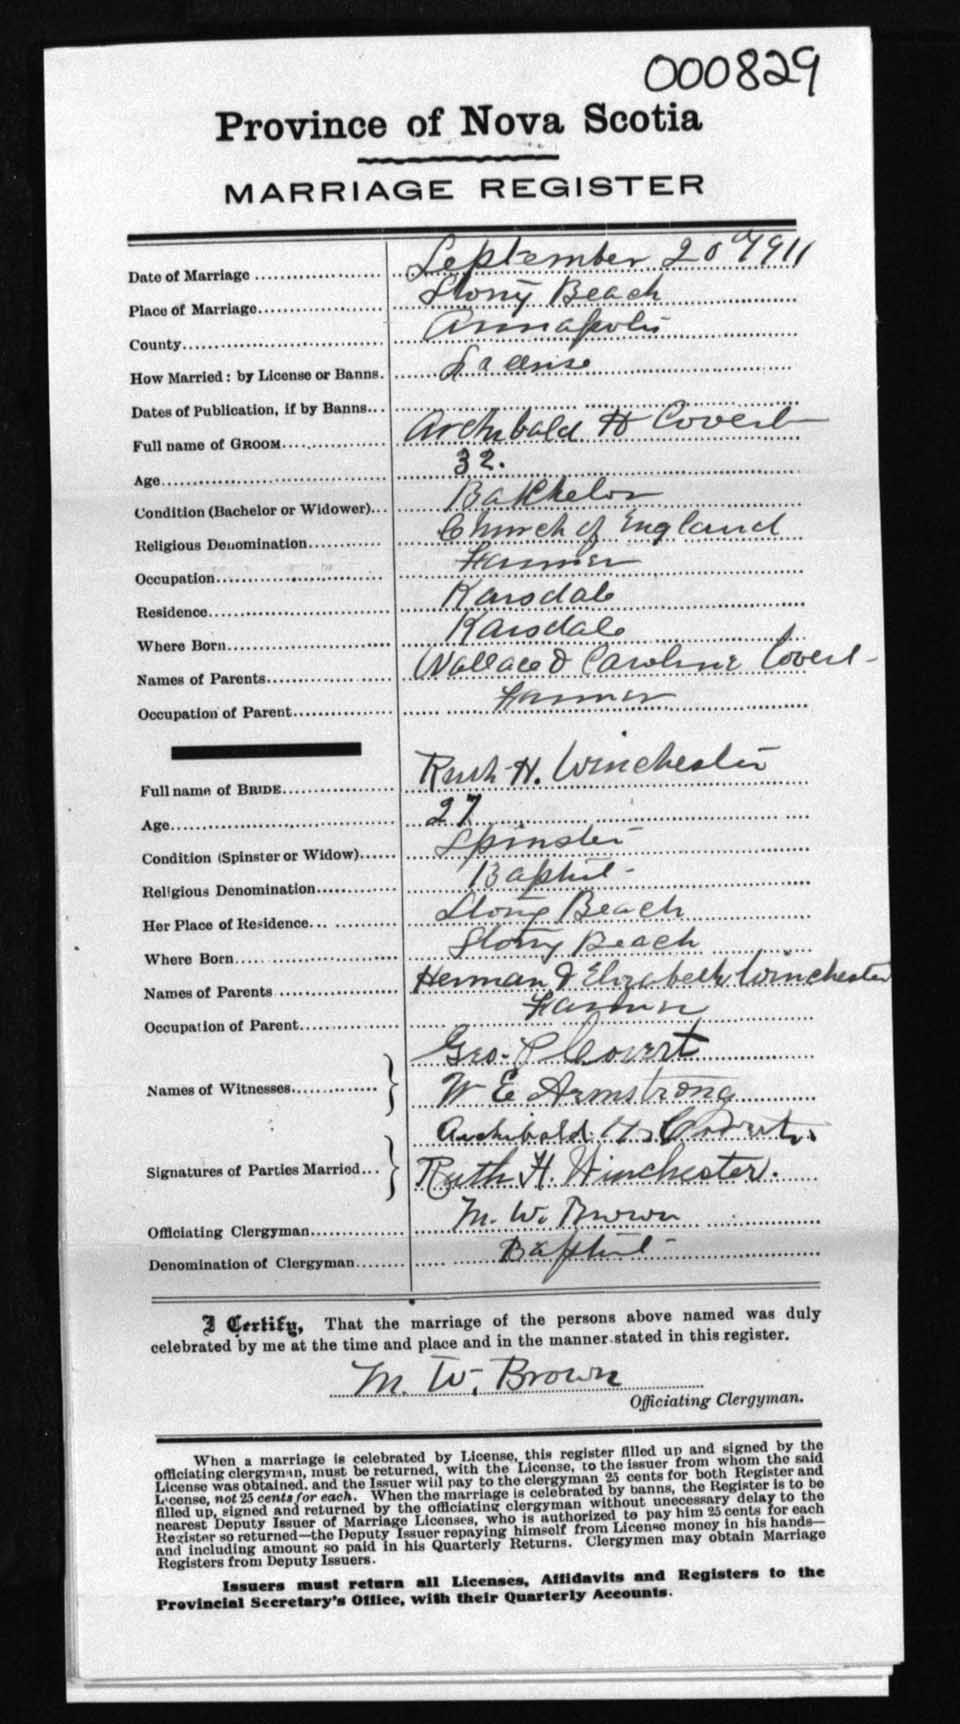 000829
Province of Nova Scotia
MARRIAGE REGISTER
Date of Marriage September 20th 1911
Place of Marriage Stony Beach
County Annapolis
How Married: by License or Banns. License
Dates of Publication, if by Banns
Full name of GROOM Archibald H Covert
Age 32.
Condition (Bachelor or Widower) Batchelor
Religious Denomination Church of England
Occupation Farmer
Residence Karsdale
Where Born Karsdale
Names of Parents Wallace & Caroline Covert
Occupation of Parent Farmer
Full name of BRIDE Ruth H. Winchester
Age 27
Condition (Spinster or Widow) Spinster
Religious Denomination Baptist
Her Place of Residence Stony Beach
Where Born Stony Beach
Names of Parents Herman & Elizabeth Winchester
Occupation of Parent Farmer
Names of Witnesses Geo. P Covert
W E Armstrong
Signatures of Parties Married Archibald H. Covert.
Ruth H. Winchester.
Officiating Clergyman M. W. Brown
Denomination of Clergyman Baptist
I Certify, That the marriage of the persons above named was duly
celebrated by me at the time and place and in the manner stated in this register.
M. W. Brown
Officiating Clergyman.
When a marriage is celebrated by License, this register filled up and signed by the
officiating clergyman, must be returned, with the License, to the issuer from whom the said
License was obtained. and the Issuer will pay to the clergyman 25 cents for both Register and
License, not 25 cents for each. When the marriage is celebrated by banns, the Register is to be
filled up, signed and returned by the officiating clergyman without unnecessary delay to the
nearest Deputy Issuer of Marriage Licenses, who is authorized to pay him 25 cents for each
Register so returned—the Deputy Issuer repaying himself from License money in his hands—
and including amount so paid in his Quarterly Returns. Clergymen may obtain Marriage
Registers from Deputy Issuers.
Issuers must return all Licenses, Affidavits and Registers to the
Provincial Secretary's Office, with their Quarterly Accounts.